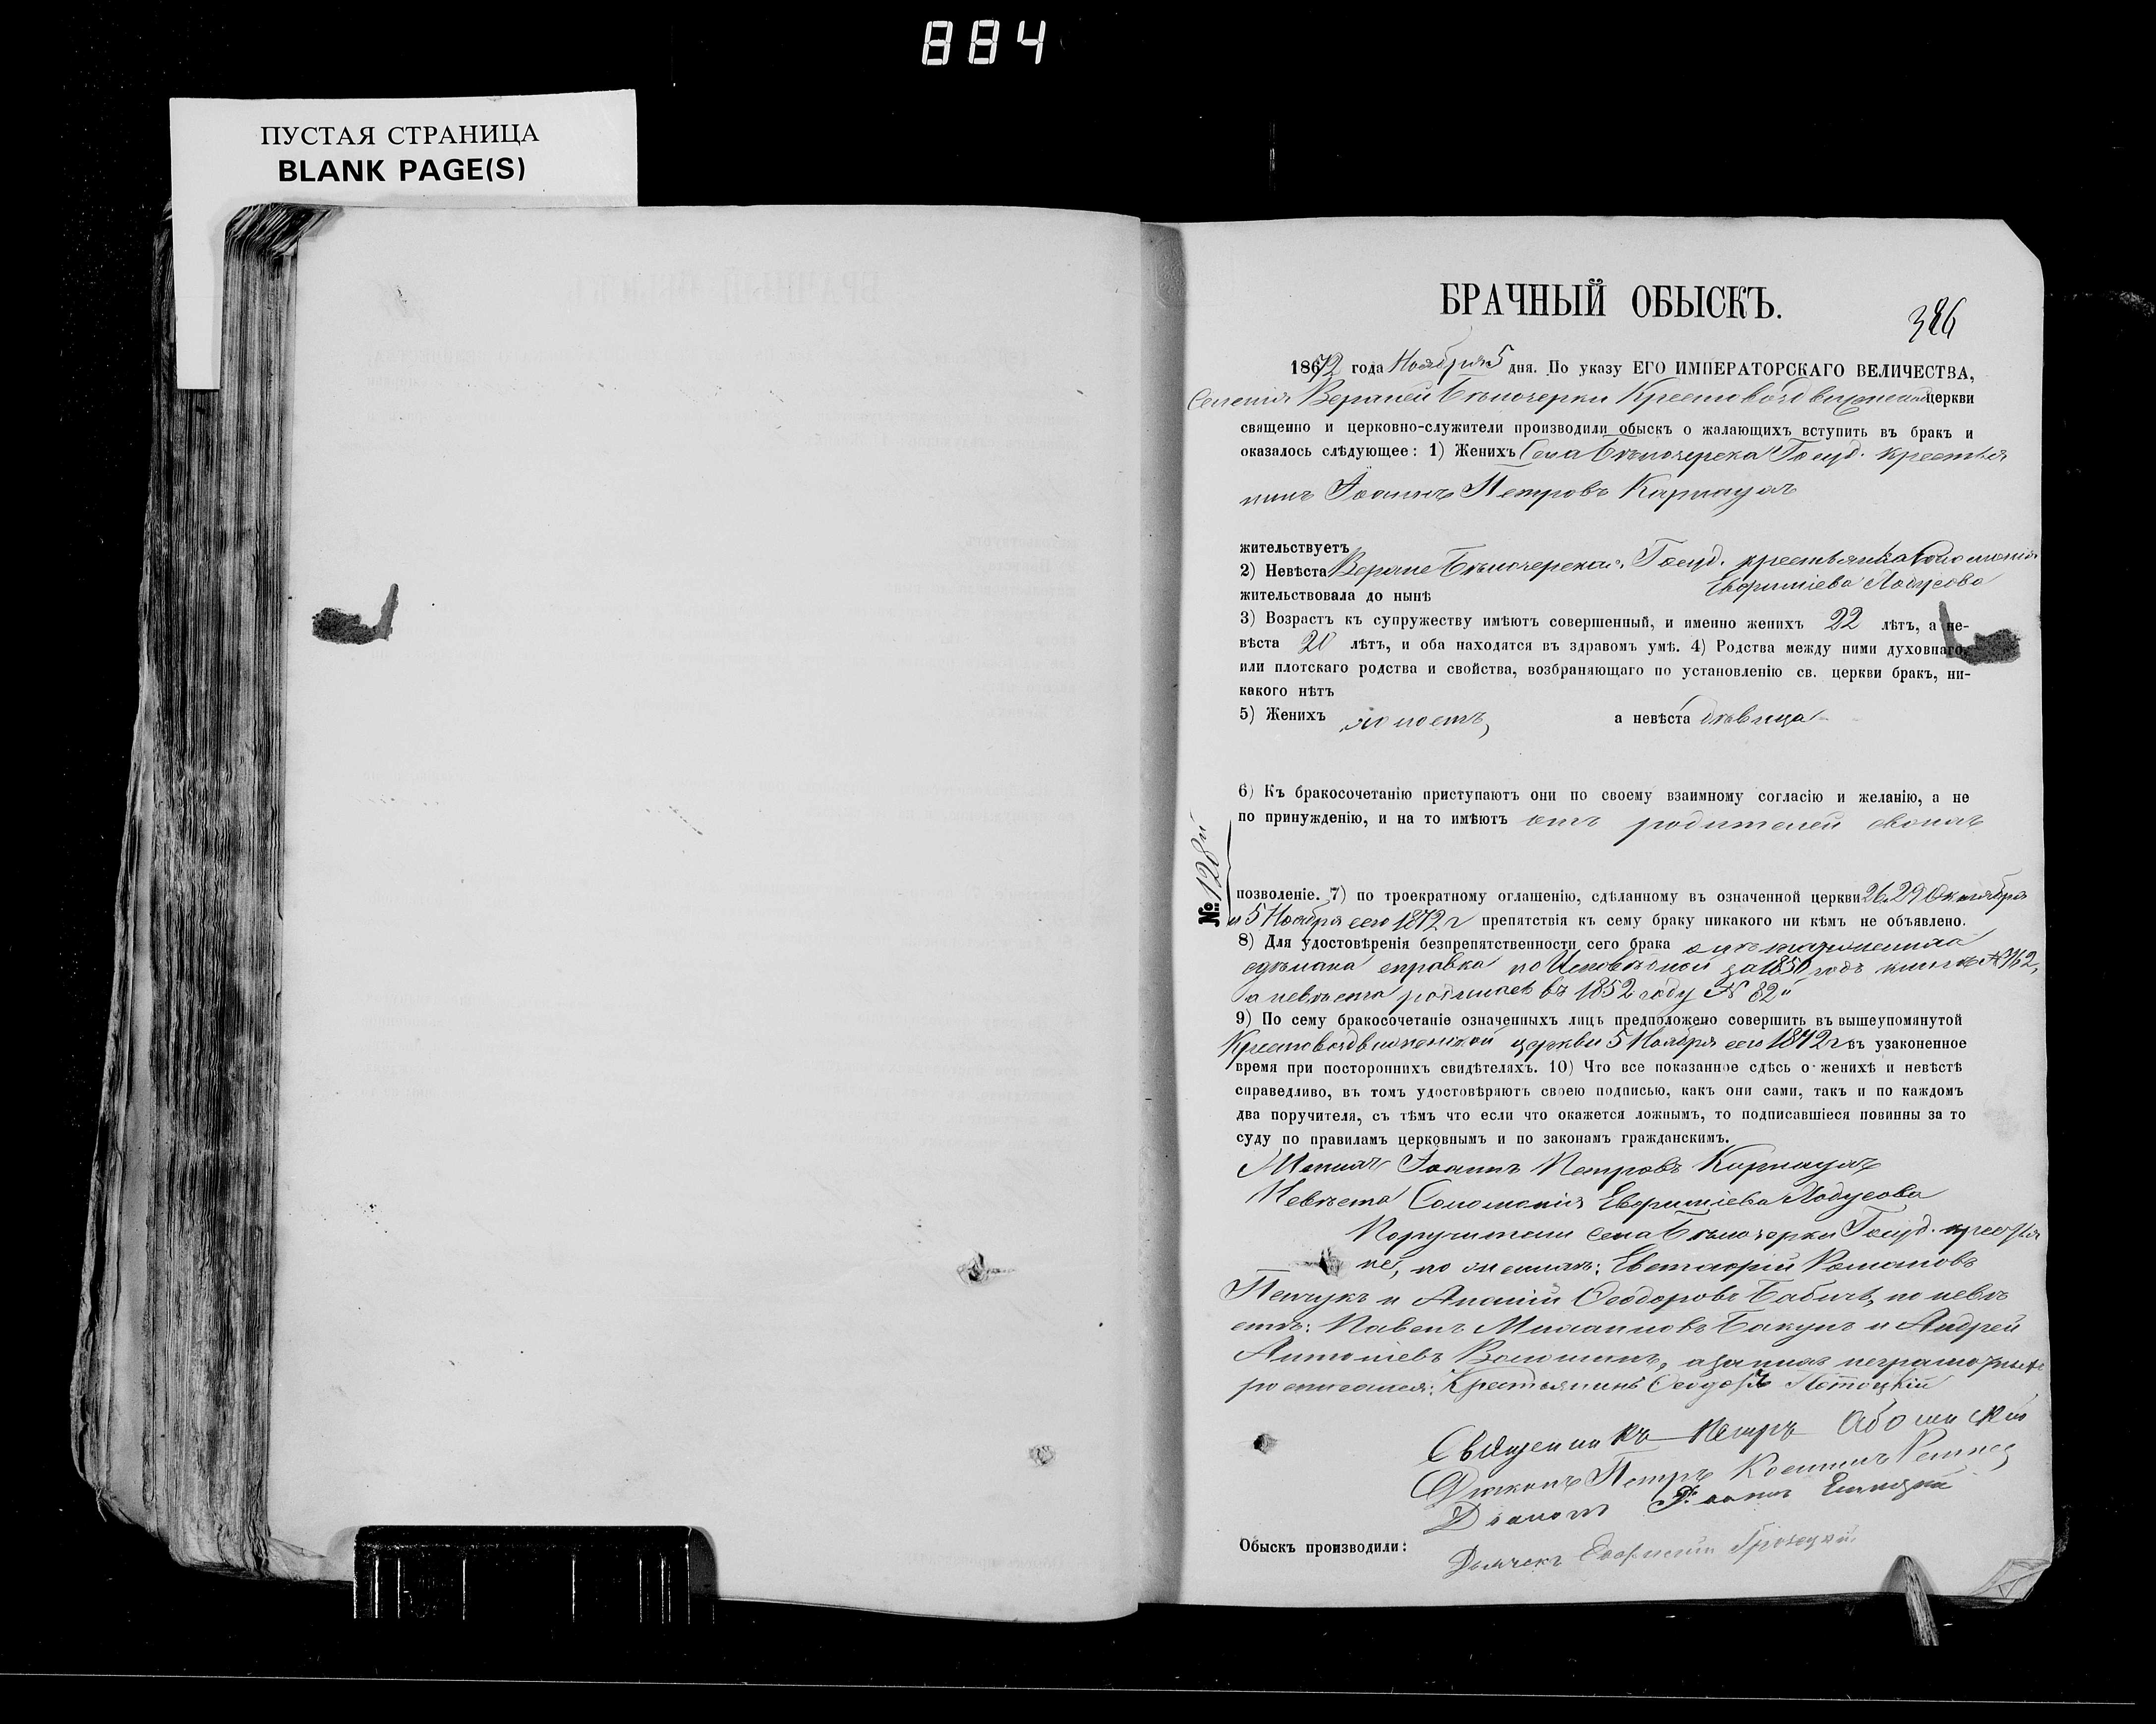 884
ПУСТАЯ СТРАНИЦА
BLANK PAGE(S)
БРАЧНЫЙ ОБЫСКЪ.
386
1872 года Ноября 5 дня. По указу ЕГО ИМПЕРАТОРСКАГО ВЕЛИЧЕСТВА,
Верхней Бѣлозерки Крестовоздвиженской церкви
священно и церковно-служители производили обыскъ о жалающихъ вступить въ бракъ и
оказалось слѣдующее: 1) Женихъ Села Бѣлозерска Госуд. крестья
нинъ Іоаннъ Петровъ Карнаухъ
жительствуетъ
2) Невѣста Верхне Бѣлозерская, Госуд. крестьянка Соломонія
Евфиміева Лобусова
жительствовала до нынѣ
3) Возрастъ къ супружеству имѣютъ совершенный, и именно женихъ 22 лѣтъ, а не-
вѣста 20 лѣтъ, и оба находятся въ здравомъ умѣ. 4) Родства между ними духовнаго,
или плотскаго родства и свойства, возбраняющаго по установленію св. церкви бракъ, ни-
какого нѣтъ
5) Женихъ холостъ, а невѣста дѣвица
6) Къ бракосочетанію приступаютъ они по своему взаимному согласію и желанію, а не
по принужденію, и на то имѣютъ отъ родителей своихъ
№ 128й
позволеніе. 7) по троекратному оглашенію, сдѣланному въ означенной церкви 26. 29 Октября
и 5 Ноября сего 1872 г препятствія къ сему браку никакого ни кѣмъ не объявлено.
8) Для удостовѣренія безпрепятственности сего брака
сдѣлана справка по за 1850 годъ книгѣ №
а невѣста родилась въ 1852 году № 82й
9) По сему бракосочетаніе означенныхъ лицъ предположено совершить въ вышеупомянутой
Крестовоздвиженской церкви 5 Ноября сего 1872 г въ узаконенное
время при постороннихъ свидѣтеляхъ. 10) Что все показанное сдѣсь о женихѣ и невѣстѣ
справедливо, въ томъ удостовѣряютъ своею подписью, какъ они сами, такъ и по каждомъ
два поручителя, съ тѣмъ что если что окажется ложнымъ, то подписавшіеся повинны за то
суду по правиламъ церковнымъ и по законамъ гражданскимъ.
Женихъ Іоаннъ Петровъ Карнаухъ
Невѣста Соломонія Евфиміева Лобусова
Поручители села Бѣлозерки Госуд. крестья
не, по женихѣ: Евстафій Романовъ
и Ананій Ѳеодоровъ Бабичъ, по невѣ
стѣ: Павелъ Бакунъ и Андрей
Антоніевъ Волошинъ, а за нихъ неграмотныхъ
росписался: Крестьянинъ Ѳеодоръ Лотоцкій
Священникъ Петръ
Діаконъ Петръ
Дьячекъ
Обыскъ производили: